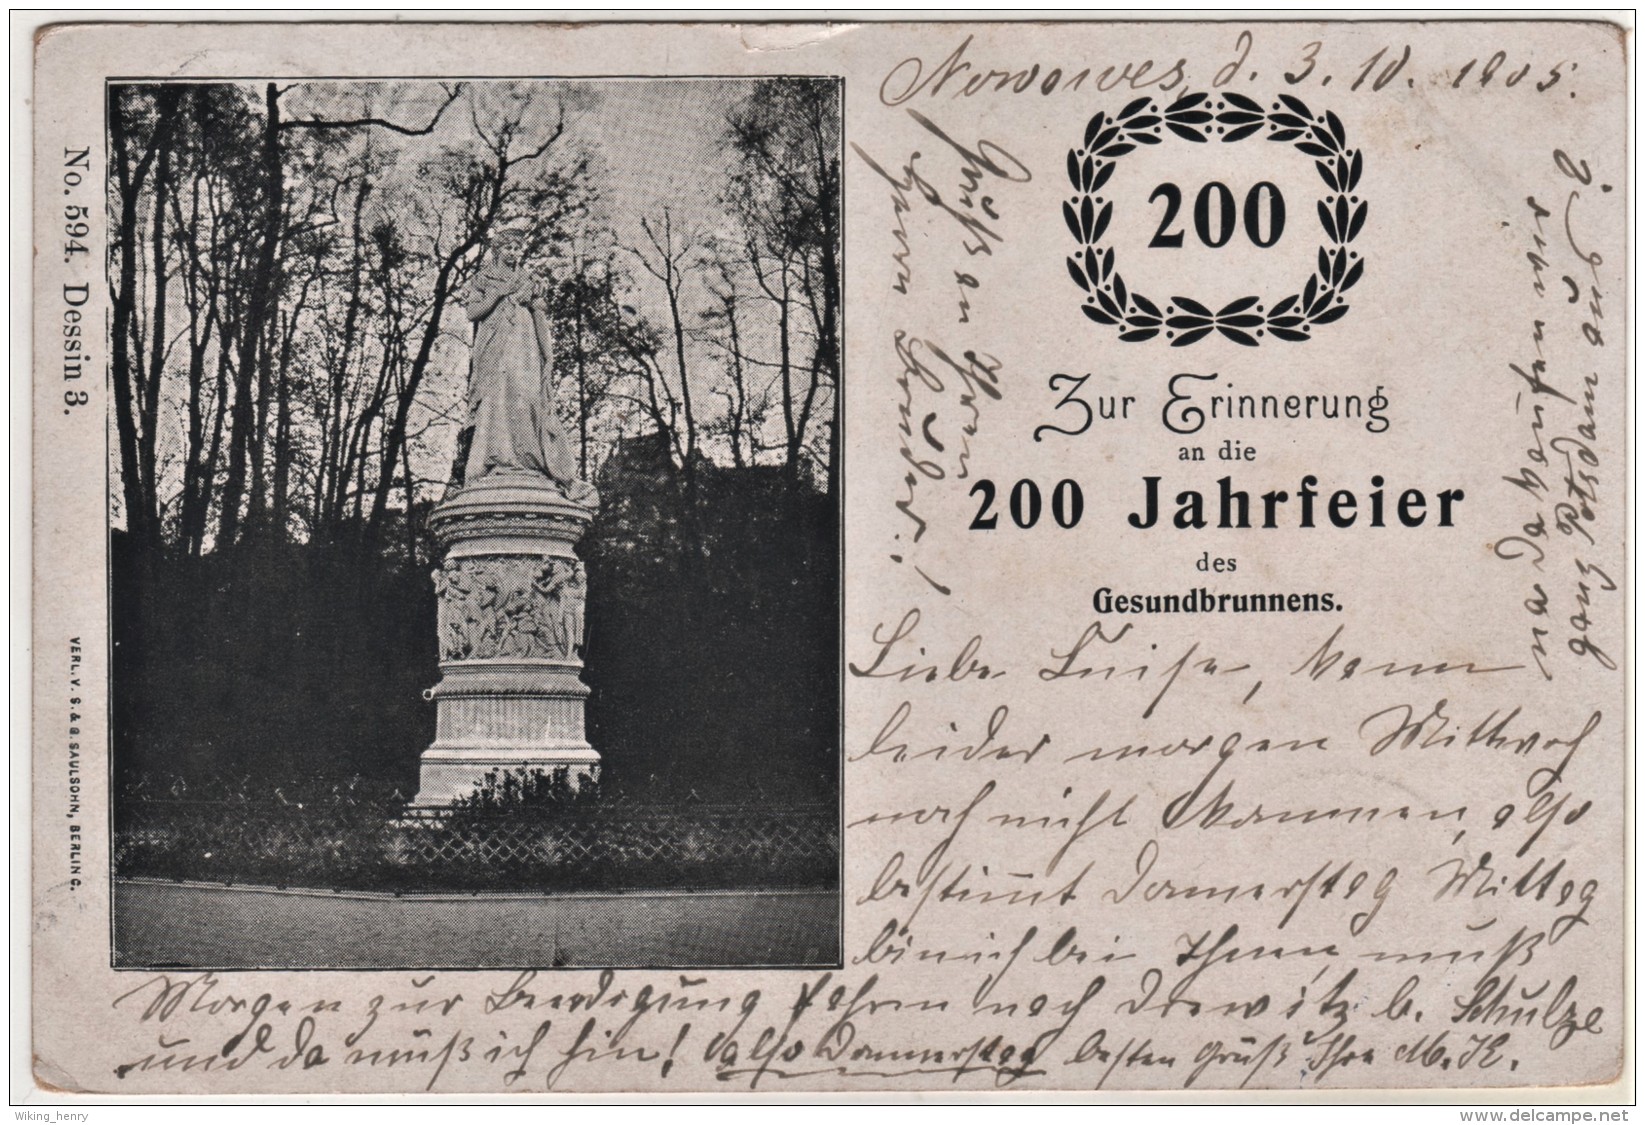 Nowawes, d. 3. 10. 1905.
200
Zur Erinnerung
an die
200 Jahrfeier
des
Gesundbrunnens.
Gruß an Ihren
Herrn Bruder!
Liebe Luise, kann
leider morgen Mittwoch
noch nicht kommen, also
bestimmt Donnerstag Mittag
bin ich bei Ihnen, muß
Morgen zur Beerdigung fahren nach Drewitz b. Schulze
und da muß ich hin! also Donnerstag besten Gruß Ihre M. K.
ganz Potsdam
daran
No. 594. Dessin 3.
VERL. V. S. & G. SAULSOHN, BERLIN C.
Wiking_henry
www.delcampe.net